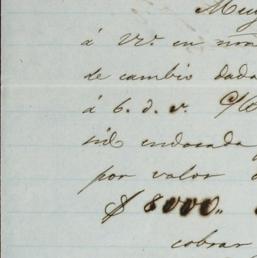 Muy
á VV. en nra
de cambio dada
á 6. d. v. C/
sid endosada
por valor
$ 8000.,
cobrar